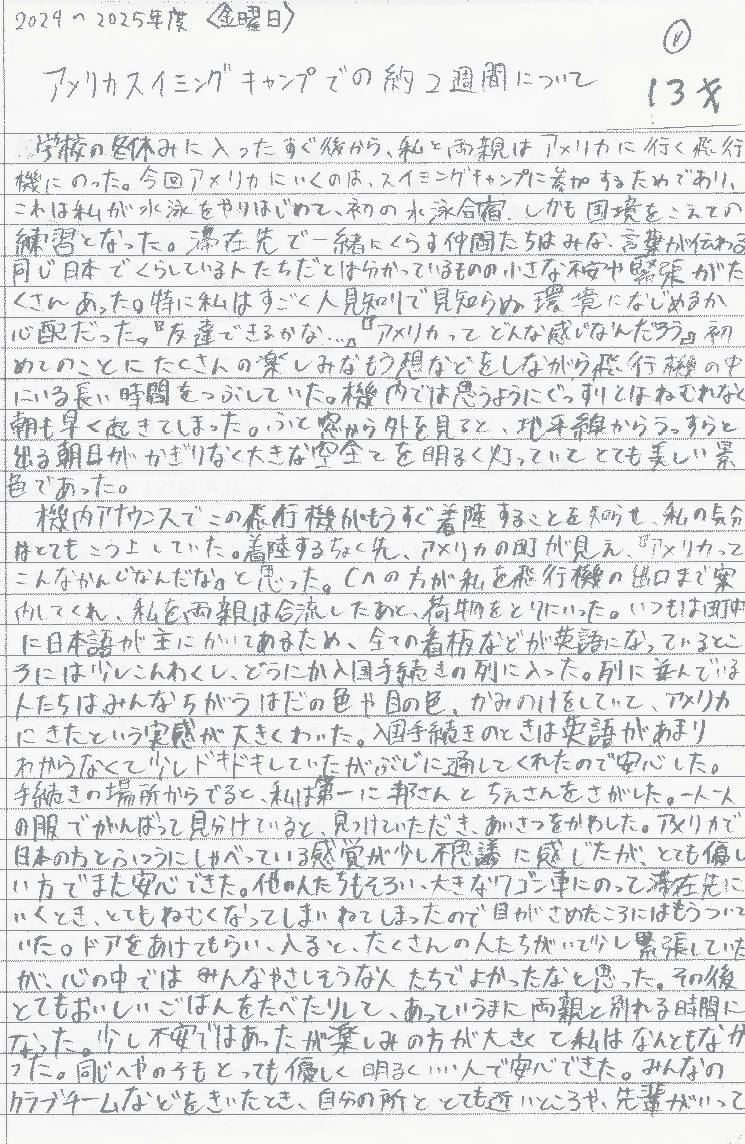 2024〜2025年度 〈金曜日〉
①
アメリカスイミングキャンプでの約2週間について
13才
学校の冬休みに入ったすぐ後から、私と両親はアメリカに行く飛行
機にのった。今回アメリカにいくのは、スイミングキャンプに参加するためであり、
これは私が水泳をやりはじめて、初の水泳合宿、しかも国境をこえての
練習となった。滞在先で一緒にくらす仲間たちはみな、言葉が伝わる
同じ日本でくらしている人たちだとは分かっているものの小さな不安や緊張がた
くさんあった。特に私はすごく人見知りで見知らぬ環境になじめるか
心配だった。『友達できるかな…』『アメリカってどんな感じなんだろう』初
めてのことにたくさんの楽しみなもう想などをしながら飛行機の中
にいる長い時間をつぶしていた。機内では思うようにぐっすりとはねむれなく
朝も早く起きてしまった。ふと窓から外を見ると、地平線からうっすらと
出る朝日がかぎりなく大きな空全てを明るく灯っていてとても美しい景
色であった。
機内アナウンスでこの飛行機がもうすぐ着陸することを知らせ、私の気分
はとてもこう上していた。着陸するちょく先、アメリカの町が見え、『アメリカって
こんなかんじなんだな』と思った。CAの方が私を飛行機の出口まで案
内してくれ、私と両親は合流したあと、荷物をとりにいった。いつもは町中
に日本語が主にかいてあるため、全ての看板などが英語になっているとこ
ろには少しこんわくし、どうにか入国手続きの列に入った。列に並んでいる
人たちはみんなちがうはだの色や目の色、かみのけをしていて、アメリカ
にきたという実感が大きくわいた。入国手続きのときは英語があまり
わからなくて少しドキドキしていたがぶじに通してくれたので安心した。
手続きの場所からでると、私は第一に邦さんとちえさんをさがした。一人一人
の服でがんばって見分けていると、見つけていただき、あいさつをかわした。アメリカで
日本の方とふつうにしゃべっている感覚が少し不思議に感じたが、とても優し
い方でまた安心できた。他の人たちもそろい、大きなワゴン車にのって滞在先に
いくとき、とてもねむくなってしまいねてしまったので目がさめたころにはもうついて
いた。ドアをあけてもらい、入ると、たくさんの人たちがいて少し緊張していた
が、心の中ではみんなやさしそうな人たちでよかったなと思った。その後
とてもおいしいごはんをたべたりして、あっていうまに両親と別れる時間に
なった。少し不安ではあったが楽しみの方が大きくて私はなんともなか
った。同じへやの子もとっても優しく明るくいい人で安心できた。みんなの
クラブチームなどをきいたとき、自分の所ととても近いところや、先輩がいって